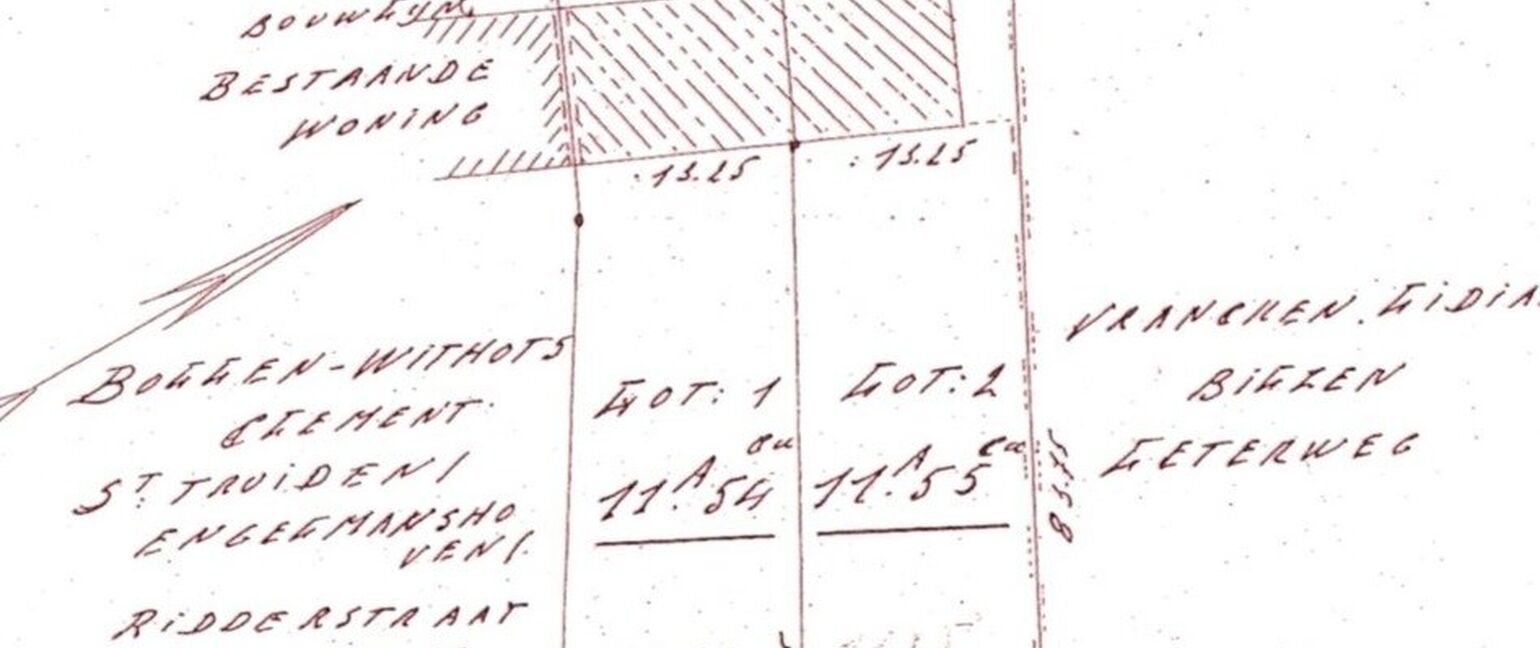 BOUWLIJN.
BESTAANDE
WONING
13.25
13.25
BOLLEN-WITHOTS
CLEMENT
ST. TRUIDEN/
ENGELMANSHO
VEN/.
RIDDERSTRAAT
LOT: 1
11A.54ca
LOT: 2
11A.55ca
VRANCKEN. LIDIA
BILZEN
LETERWEG